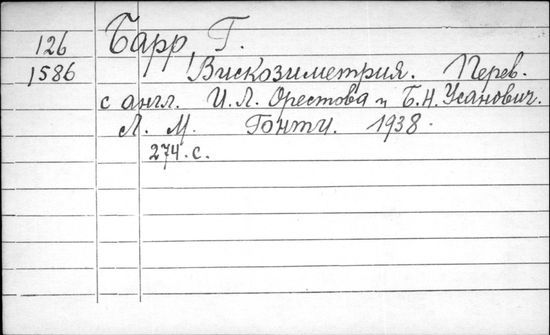 126 Барр, Г.
1586 Вискозиметрия. Перев.
с англ. И.Л. Орестова и Б.Н. Усанович.
Л. М. Гонти. 1938.
274. с.